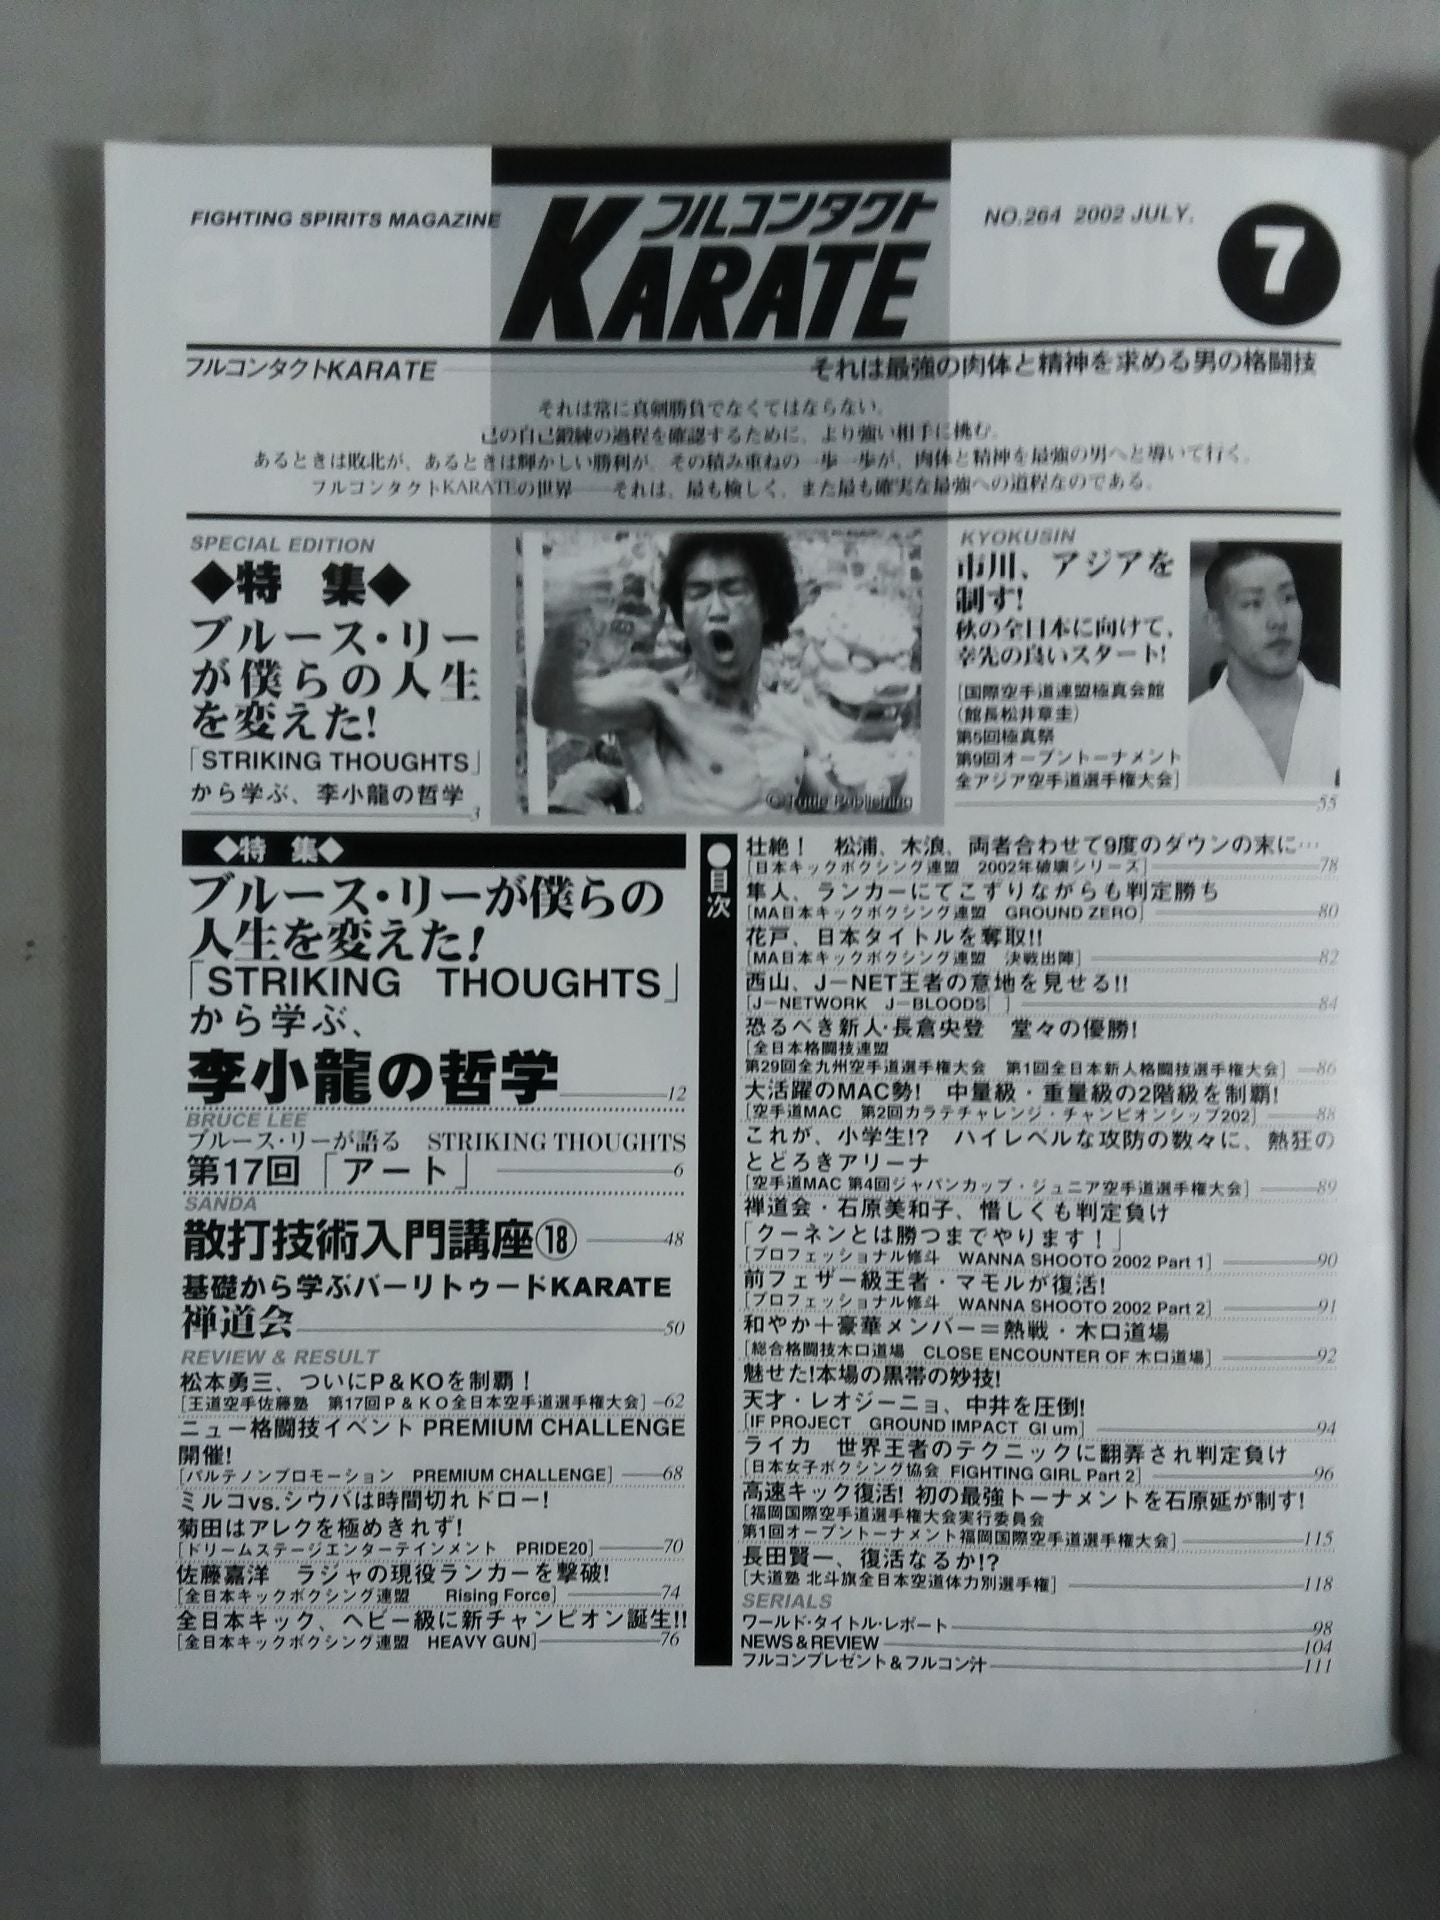 FIGHTING SPIRITS MAGAZINE
フルコンタクト
KARATE
NO.264 2002 JULY.
7
フルコンタクトKARATE
それは最強の肉体と精神を求める男の格闘技
それは常に真剣勝負でなくてはならない。
己の自己鍛練の過程を確認するために、より強い相手に挑む。
あるときは敗北が、あるときは輝かしい勝利が。その積み重ねの一歩一歩が、肉体と精神を最強の男へと導いて行く。
フルコンタクトKARATEの世界——それは、最も険しく、また最も確実な最強への道程なのである。
SPECIAL EDITION
◆特 集◆
ブルース・リー
が僕らの人生
を変えた!
「STRIKING THOUGHTS」
から学ぶ、李小龍の哲学
3
©Tuttle Publishing
KYOKUSIN
市川、アジアを
制す!
秋の全日本に向けて、
幸先の良いスタート!
[国際空手道連盟極真会館
(館長松井章圭)
第5回極真祭
第9回オープントーナメント
全アジア空手道選手権大会]
55
◆特 集◆
ブルース・リーが僕らの
人生を変えた!
「STRIKING THOUGHTS」
から学ぶ、
李小龍の哲学 12
BRUCE LEE
ブルース・リーが語る STRIKING THOUGHTS
第17回「アート」 6
SANDA
散打技術入門講座⑱ 48
基礎から学ぶバーリトゥードKARATE
禅道会 50
REVIEW & RESULT
松本勇三、ついにP&KOを制覇!
[王道空手佐藤塾 第17回P&KO全日本空手道選手権大会] 62
ニュー格闘技イベント PREMIUM CHALLENGE
開催!
[パルテノンプロモーション PREMIUM CHALLENGE] 68
ミルコvs.シウバは時間切れドロー!
菊田はアレクを極めきれず!
[ドリームステージエンターテインメント PRIDE20] 70
佐藤嘉洋 ラジャの現役ランカーを撃破!
[全日本キックボクシング連盟 Rising Force] 74
全日本キック、ヘビー級に新チャンピオン誕生!!
[全日本キックボクシング連盟 HEAVY GUN] 76
●目次
壮絶! 松浦、木浪、両者合わせて9度のダウンの末に…
[日本キックボクシング連盟 2002年破壊シリーズ] 78
隼人、ランカーにてこずりながらも判定勝ち
[MA日本キックボクシング連盟 GROUND ZERO] 80
花戸、日本タイトルを奪取!!
[MA日本キックボクシング連盟 決戦出陣] 82
西山、J－NET王者の意地を見せる!!
[J－NETWORK J－BLOODS ] 84
恐るべき新人・長倉央登 堂々の優勝!
[全日本格闘技連盟
第29回全九州空手道選手権大会 第1回全日本新人格闘技選手権大会] 86
大活躍のMAC勢! 中量級・重量級の2階級を制覇!
[空手道MAC 第2回カラテチャレンジ・チャンピオンシップ202] 88
これが、小学生!? ハイレベルな攻防の数々に、熱狂の
とどろきアリーナ
[空手道MAC 第4回ジャパンカップ・ジュニア空手道選手権大会] 89
禅道会・石原美和子、惜しくも判定負け
「クーネンとは勝つまでやります!」
[プロフェッショナル修斗 WANNA SHOOTO 2002 Part 1] 90
前フェザー級王者・マモルが復活!
[プロフェッショナル修斗 WANNA SHOOTO 2002 Part 2] 91
和やか＋豪華メンバー＝熱戦・木口道場
[総合格闘技木口道場 CLOSE ENCOUNTER OF 木口道場] 92
魅せた!本場の黒帯の妙技!
天才・レオジーニョ、中井を圧倒!
[IF PROJECT GROUND IMPACT GI um] 94
ライカ 世界王者のテクニックに翻弄され判定負け
[日本女子ボクシング協会 FIGHTING GIRL Part 2] 96
高速キック復活! 初の最強トーナメントを石原延が制す!
[福岡国際空手道選手権大会実行委員会
第1回オープントーナメント福岡国際空手道選手権大会] 115
長田賢一、復活なるか!?
[大道塾 北斗旗全日本空道体力別選手権] 118
SERIALS
ワールド・タイトル・レポート 98
NEWS&REVIEW 104
フルコンプレゼント&フルコン汁 111